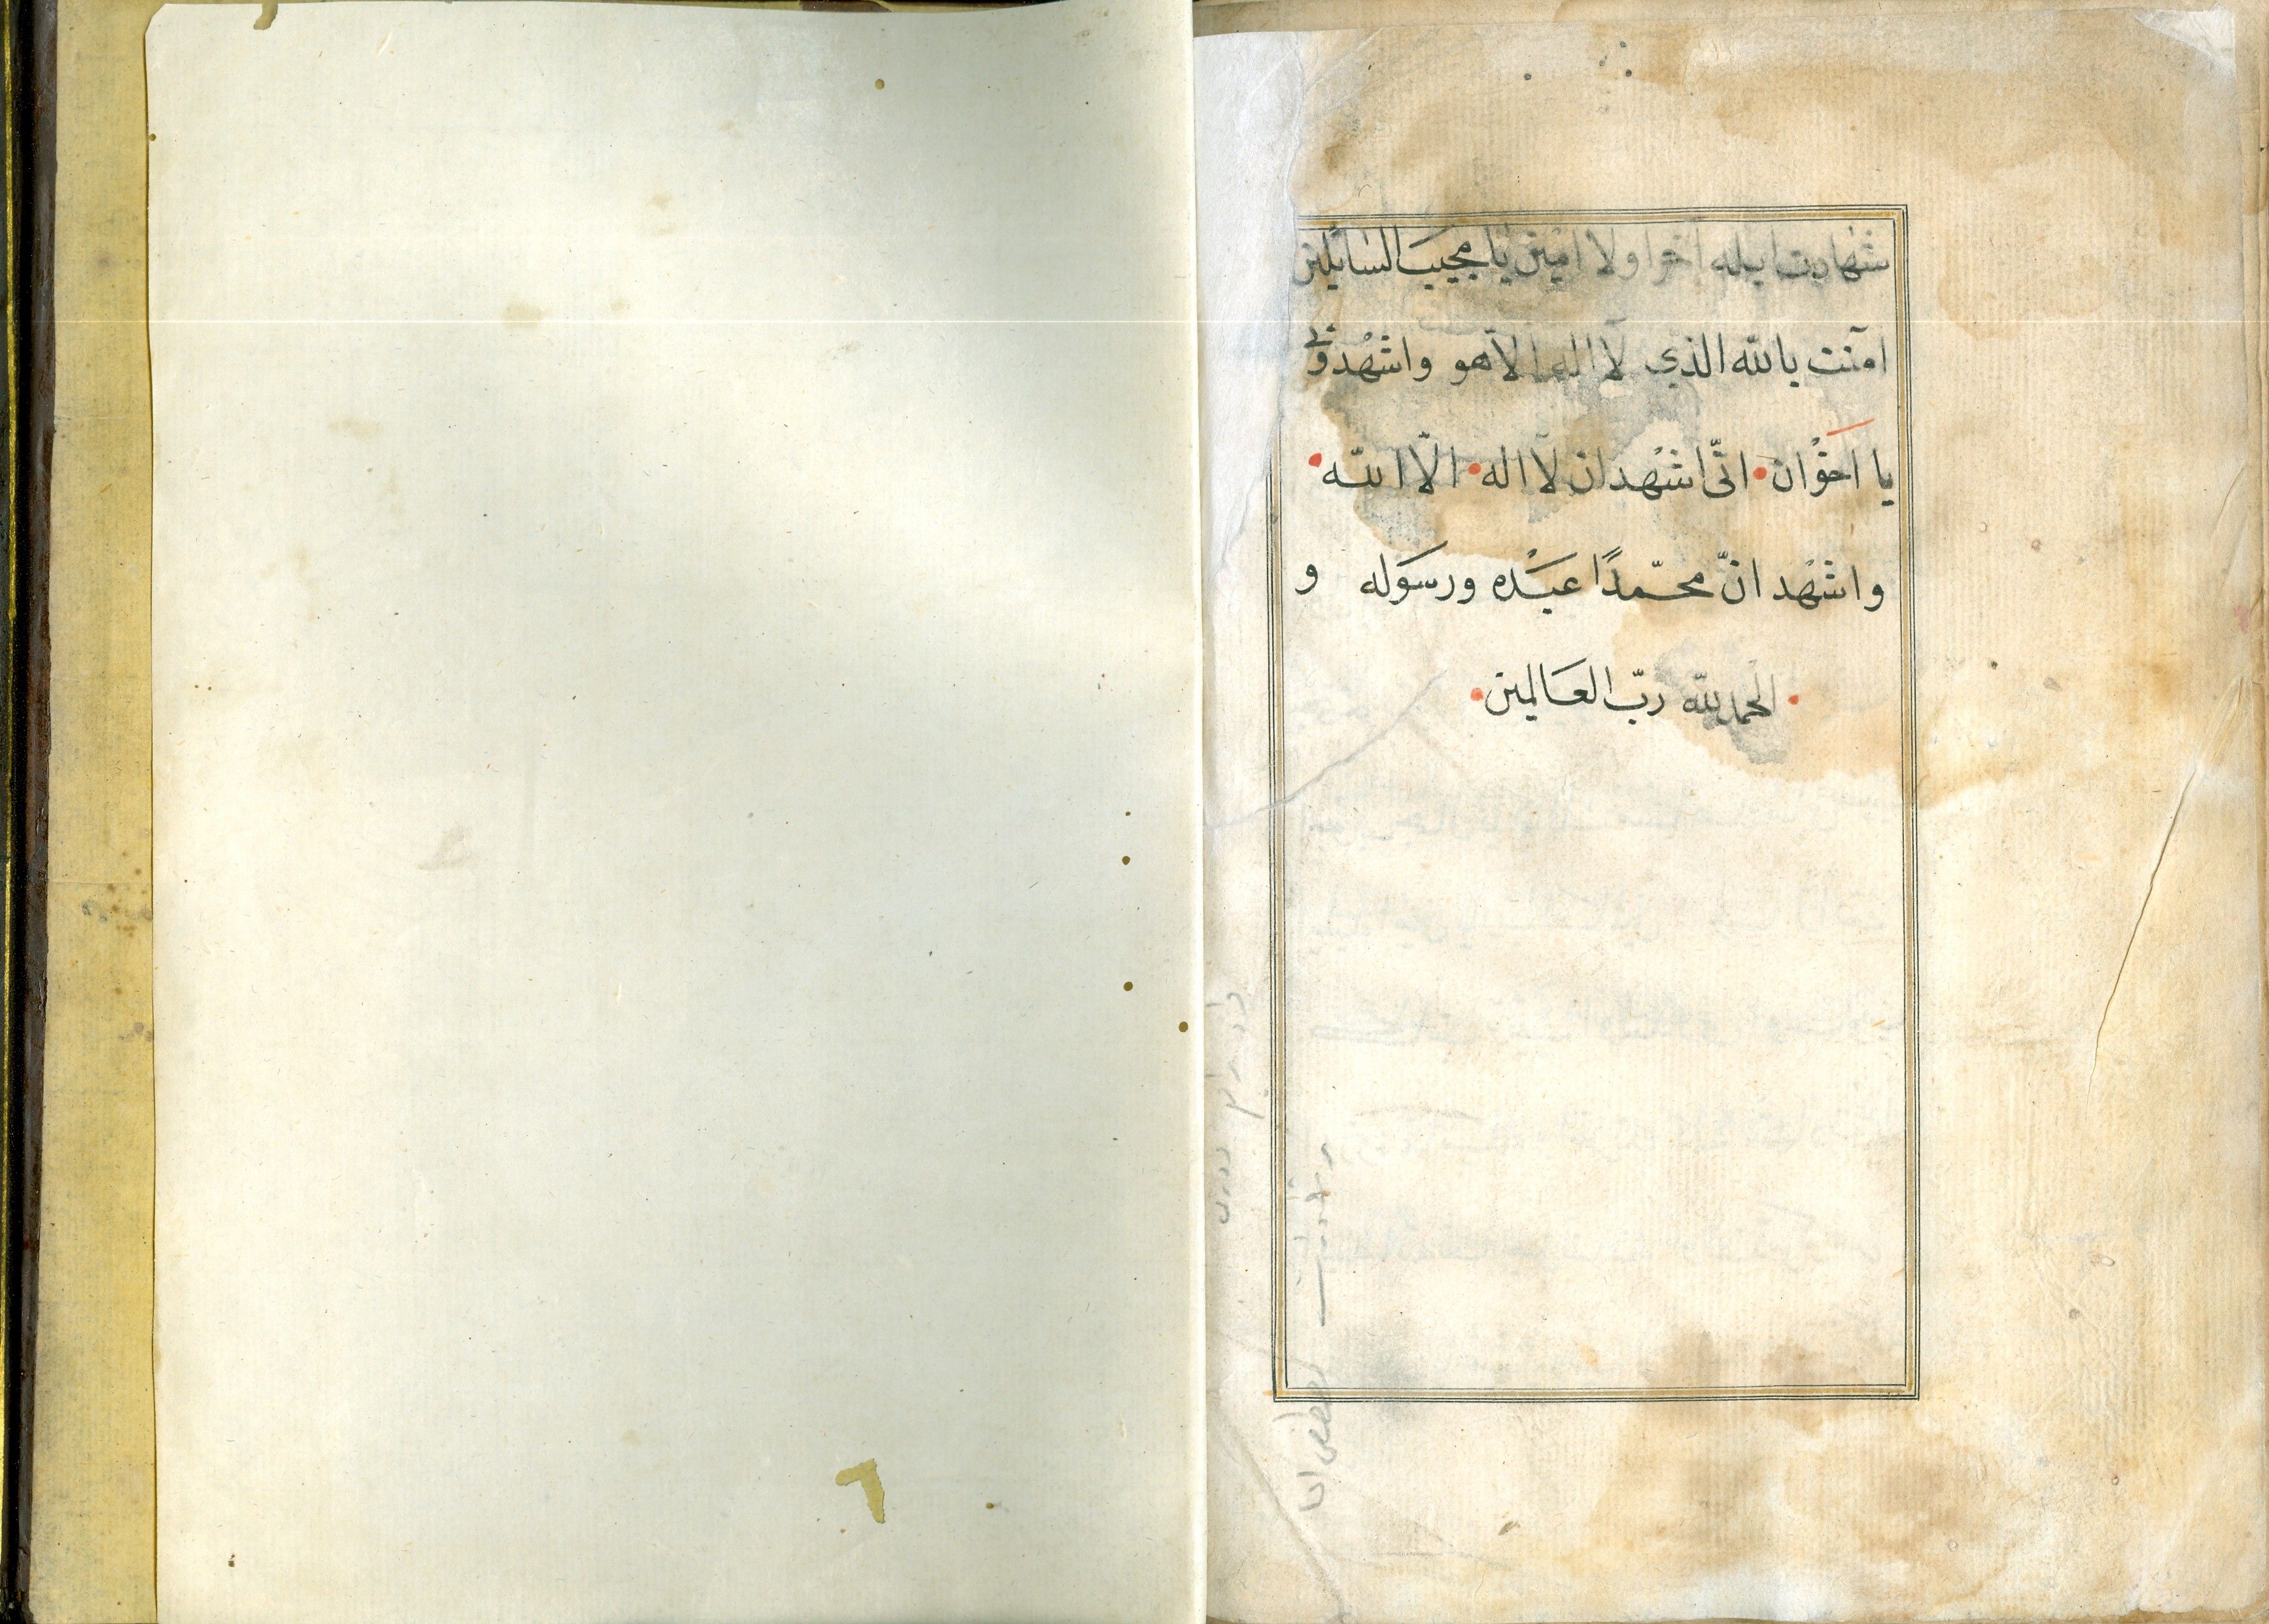 شهادت ايله آخر اولا امين يا مجيب السائلين
امنت بالله الذي لا اله الا هو واشهدوني
يا اخوان انّى اشهد ان لا اله الّا الله
واشهد انّ محمّدًا عبده ورسوله و
الحمد لله ربّ العالمين